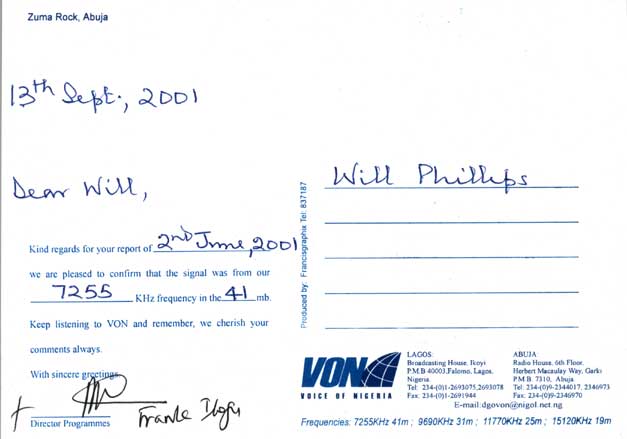 Zuma Rock, Abuja
13th Sept., 2001
Dear Will,
Kind regards for your report of 2nd June, 2001
we are pleased to confirm that the signal was from our
7255 KHz frequency in the 41 mb.
Keep listening to VON and remember, we cherish your
comments always.
With sincere greetings
Director Programmes
Frank
Produced by: Francisgraphix Tel: 837187
Will Phillips
VON
VOICE OF NIGERIA
LAGOS:
Broadcasting House, Ikoyi
P.M.B 40003,Falomo, Lagos,
Nigeria.
Tel: 234-(0)1-2693075,2693078
Fax: 234-(0)1-2691944
ABUJA:
Radio House, 6th Floor,
Herbert Macaulay Way, Garki
P.M.B. 7310, Abuja
Tel: 234-(0)9-2344017, 2346973
Fax: 234-(0)9-2346970
E-mail:dgovon@nigol.net.ng
Frequencies: 7255KHz 41m ; 9690KHz 31m ; 11770KHz 25m ; 15120KHz 19m